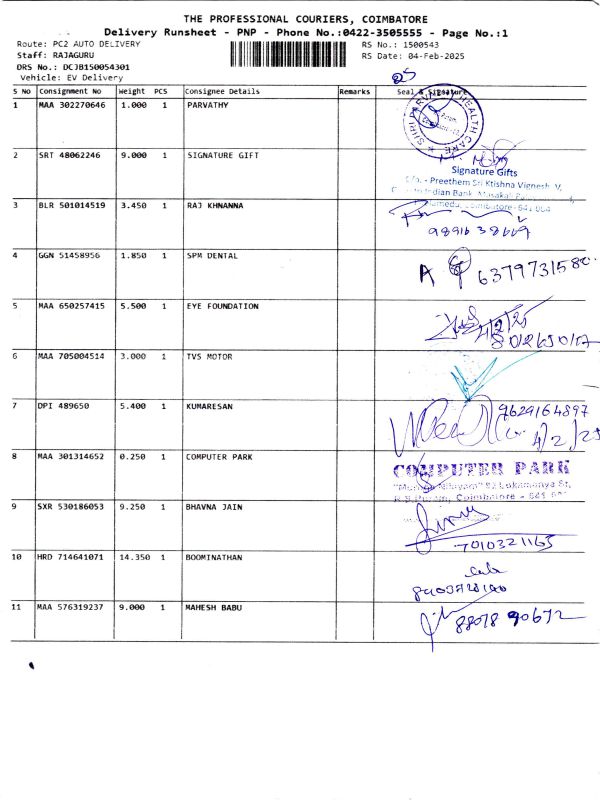 THE PROFESSIONAL COURIERS, COIMBATORE
Delivery Runsheet - PNP - Phone No.:0422-3505555 - Page No.:1
Route: PC2 AUTO DELIVERY RS No.: 1500543
Staff: RAJAGURU RS Date: 04-Feb-2025
DRS No.: DCJB150054301
Vehicle: EV Delivery
S No Consignment No Weight PCS Consignee Details Remarks Seal & Signature
1 MAA 302270646 1.000 1 PARVATHY
SHRI PARVATHY HEALTH CARE
2 SRT 48062246 9.000 1 SIGNATURE GIFT
Signature Gifts
Preethem Sri Krishna Vignesh. V,
Indian Bank,
Coimbatore-641 004
3 BLR 501014519 3.450 1 RAJ KHNANNA
4 GGN 51458956 1.850 1 SPM DENTAL
A 6379731580
5 MAA 650257415 5.500 1 EYE FOUNDATION
4/2/25
6 MAA 705004514 3.000 1 TVS MOTOR
7 DPI 489650 5.400 1 KUMARESAN
9629164897
4/2/25
8 MAA 301314652 0.250 1 COMPUTER PARK
COMPUTER PARK
Lokamanya St,
R.S.Puram, Coimbatore - 641
9 SXR 530186053 9.250 1 BHAVNA JAIN
7010321163
10 HRD 714641071 14.350 1 BOOMINATHAN
11 MAA 576319237 9.000 1 MAHESH BABU
88078 90672